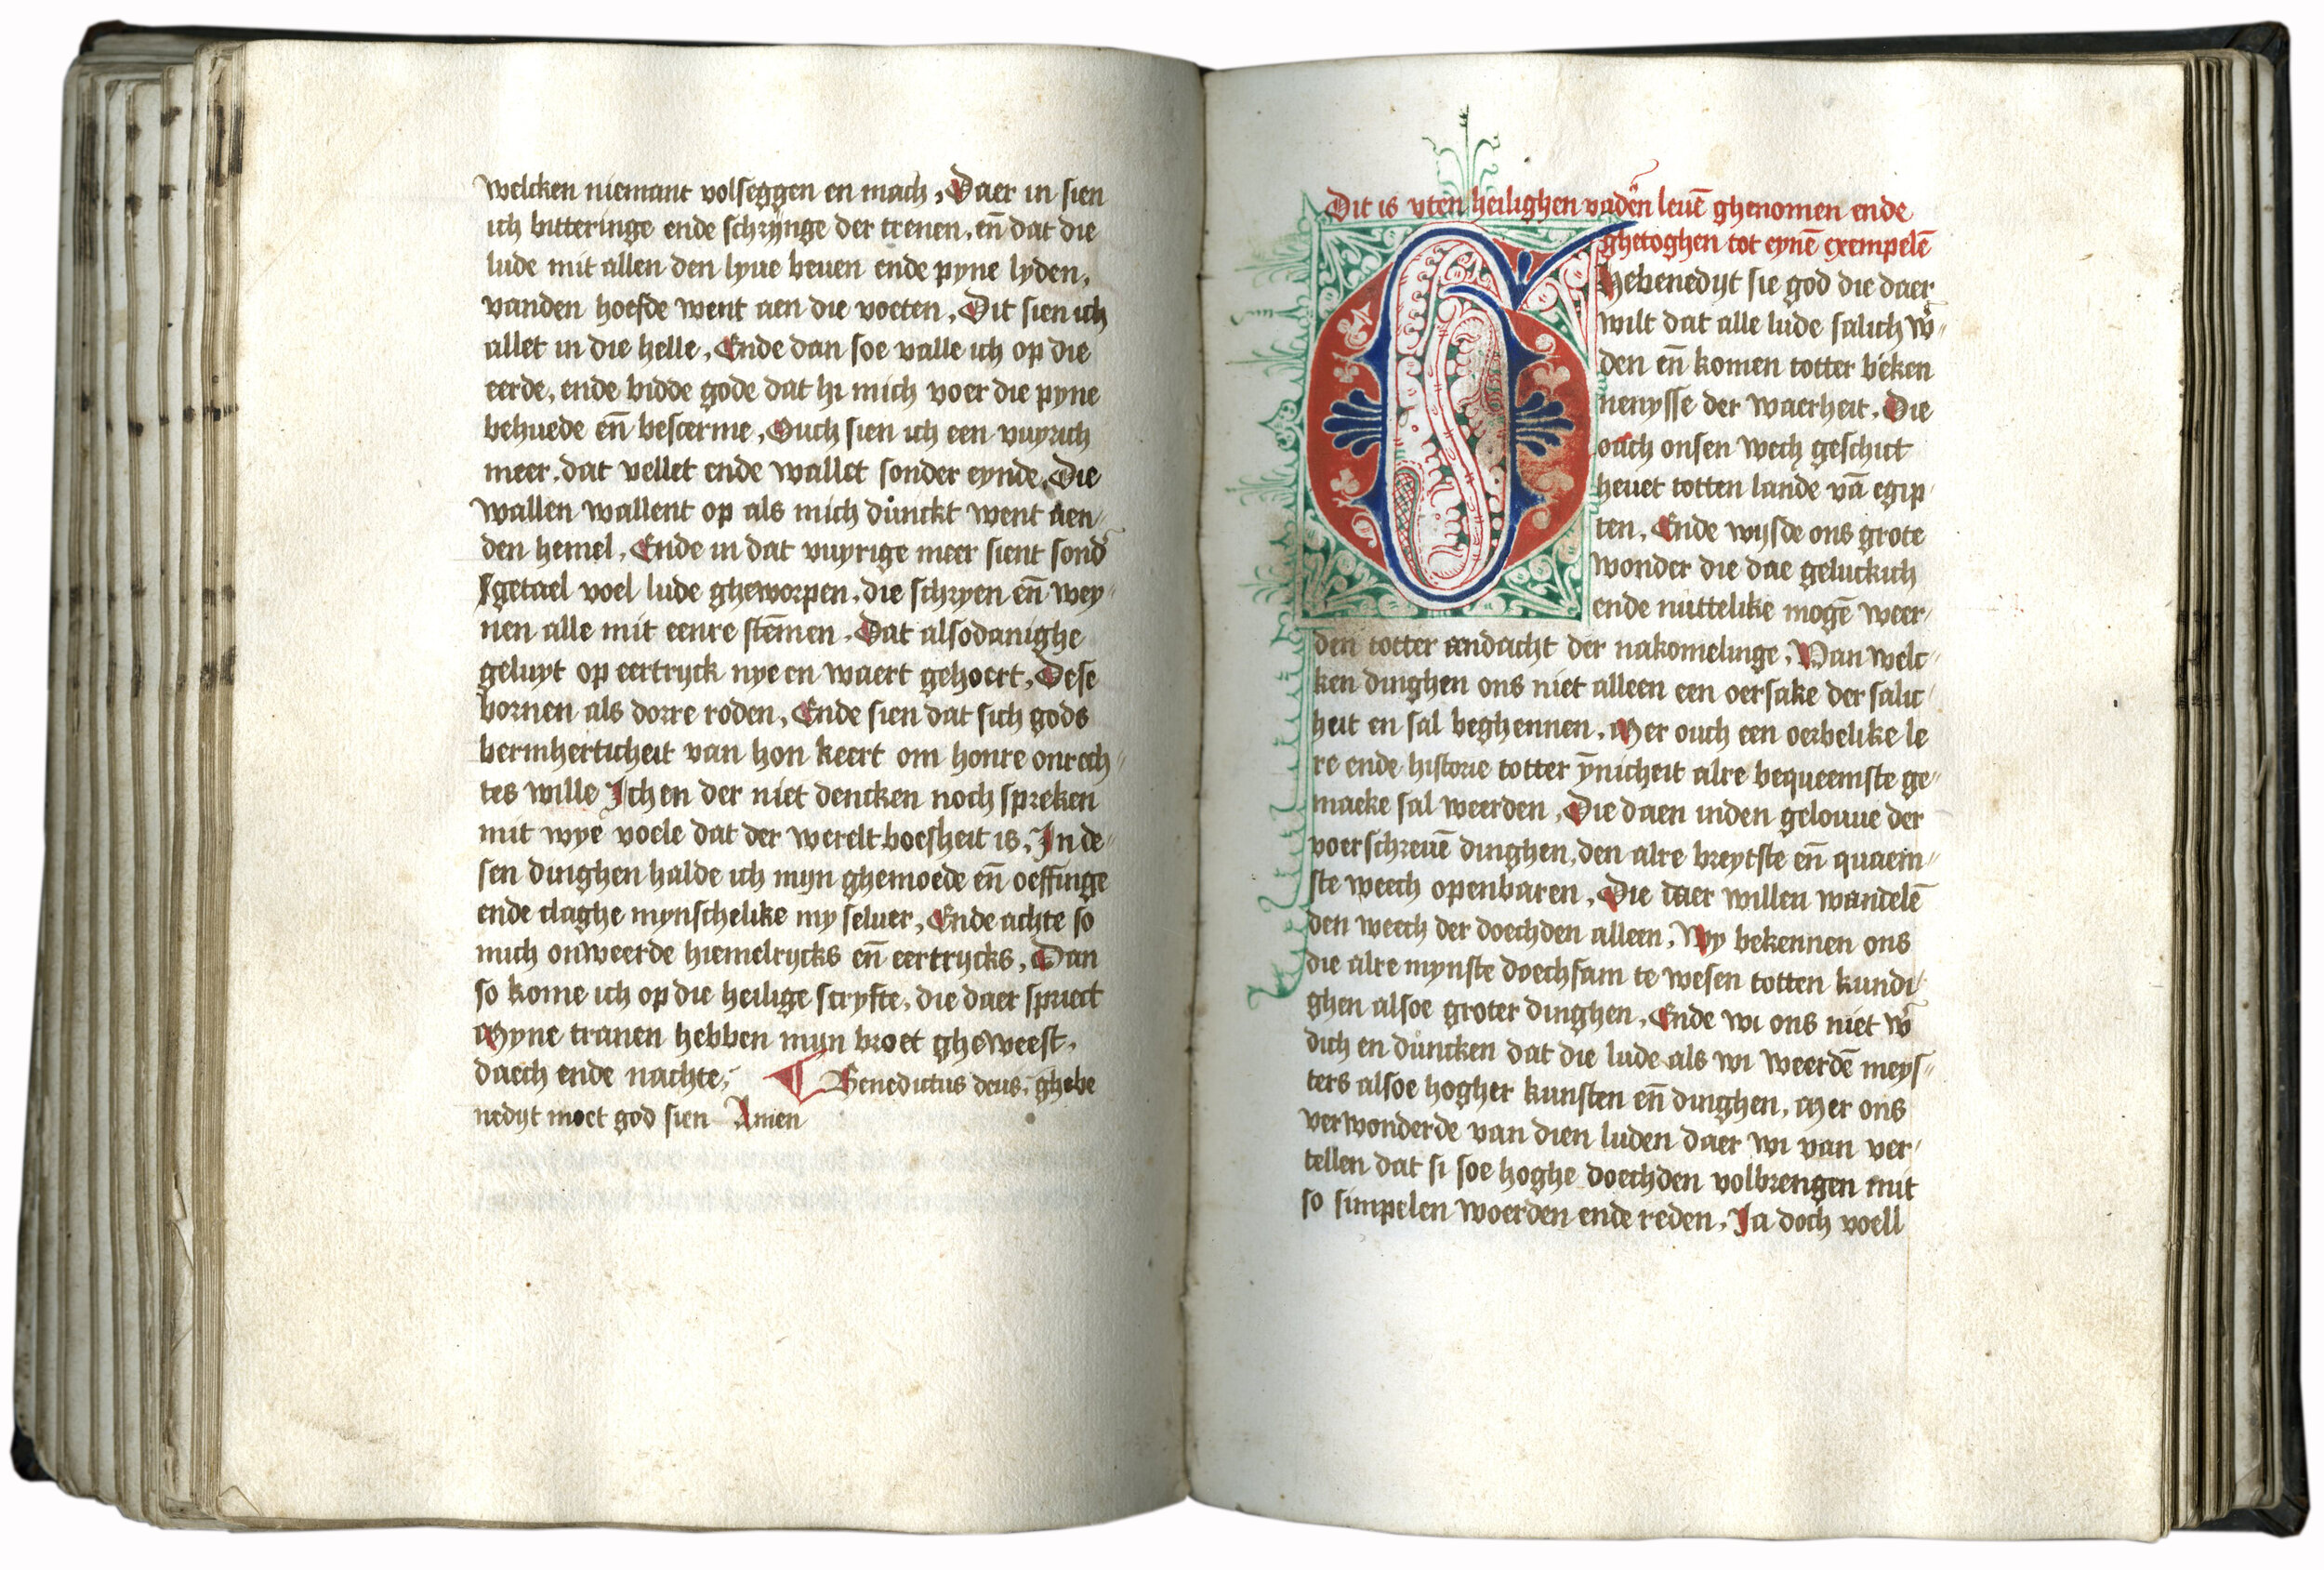 welcken niemant volseggen en mach, Daer in sien
ich bitteringe ende schrijnge der trenen, en̄ dat die
lude mit allen den lyue beuen ende pyne lyden,
vanden hoefde went aen die voeten, Dit sien ich
allet in die helle, Ende dan soe valle ich op die
eerde, ende bidde gode dat hi mich voer die pyne
behuede en̄ bescerme, Ouch sien ich een vuyrich
meer, dat vellet ende wallet sonder eynde, Die
wallen wallent op als mich důnckt went aen
den hemel, Ende in dat vuyrige meer sient sond̉
getael voel lude gheworpen, die schryen en̄ wey
nen alle mit eenre stēmen, Dat alsodanighe
geluyt op eertryck nye en waert gehoert, Dese
bornen als dorre roden, Ende sien dat sich gods
bermherticheit van hon keert om honre onrech
tes wille Ich en der niet dencken noch spreken
mit wye voele dat der werelt boesheit is, In de
sen dinghen halde ich myn ghemoede en̄ oeffinge
ende claghe mynschelike my seluer, Ende achte so
mich onweerde hiemelrycks en̄ eertrycks, Dan
so kome ich op die heilige scryfte, die daer spriect
Myne tranen hebben myn broet gheweest,
daech ende nachte, Benedictus deus, ghebe
nedyt moet god sien Amen
Dit is vten heilighen vaden̉ leuē ghenomen ende
ghetoghen tot eynē exempelē
Ghebenedyt sie god die daer
wilt dat alle lude salich w̉
den en̄ komen totter beken
nenysse der waerheit, Die
ouch onsen wech geschict
heuet totten lande vā egip
ten, Ende wysde ons grote
wonder die dae geluckich
ende nuttelike mogē weer
den totter aendacht der nakomelinge, Van welc
ken dinghen ons niet alleen een oersake der salic
heit en sal beghennen, Mer ouch een oerbelike le
re ende historie totter ȳnicheit alre bequeemste ge
maeke sal weerden, Die daen inden gelouue der
voerschreuē dinghen, den alre breytste en̄ quaem
ste weech openbaren, Die daer willen wandelē
den weech der doechden alleen, Wy bekennen ons
die alre mynste doechsam te wesen totten kundi
ghen alsoe groter dinghen, Ende wi ons niet w̉
dich en důncken dat die lude als wi weerdē meys
ters alsoe hogher kunsten en̄ dinghen, Mer ons
verwonderde van dien luden daer wi van ver
tellen dat si soe hoghe doechden volbrengen mit
so simpelen woerden ende reden, Ja doch voell